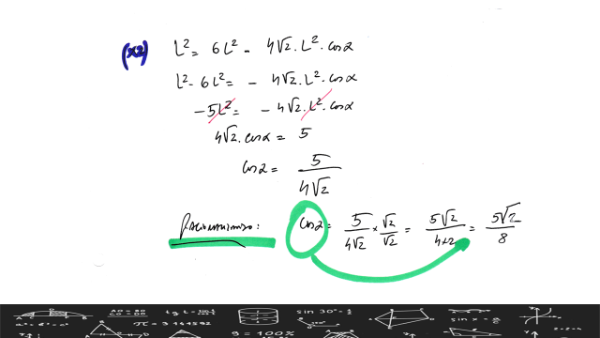 (x2) L² = 6L² - 4√2.L².cosα
L² - 6L² = - 4√2.L².cosα
- 5L² = - 4√2.L².cosα
4√2.cosα = 5
cosα = 5/4√2
Racionalizando: cosα = 5/4√2 × √2/√2 = 5√2/4×2 = 5√2/8
sin 30° = ½
π = 3.141592
9 = 100%